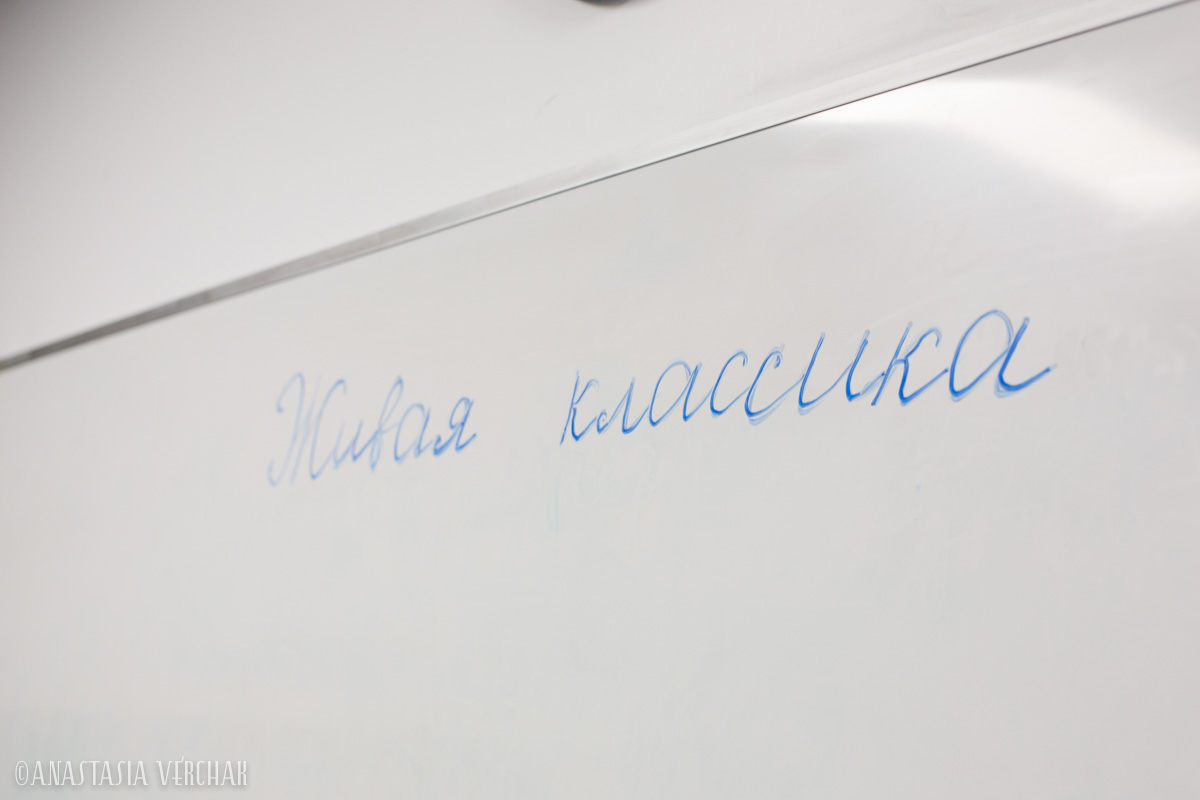 Живая классика
©ANASTASIA VERCHAK